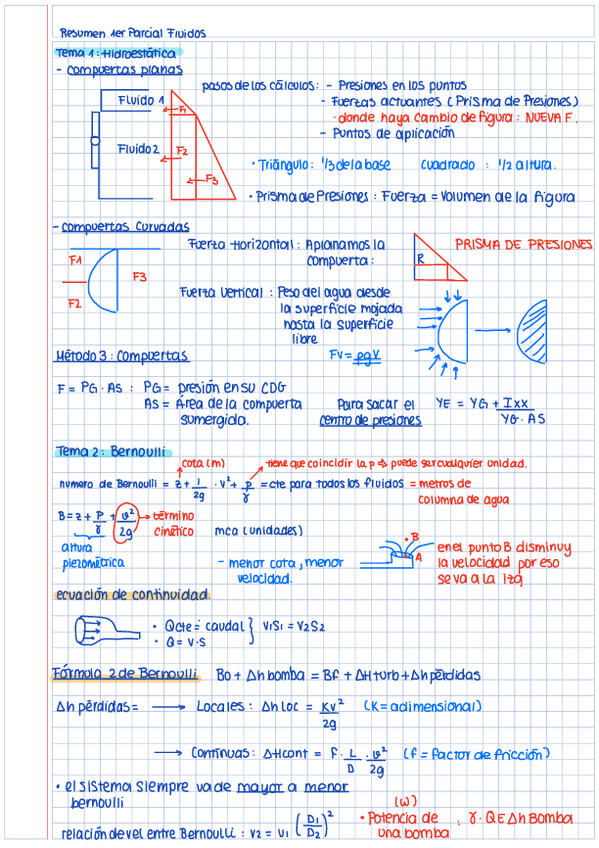 Resumen 1er Parcial Fluidos
Tema 1: Hidroestática
- compuertas planas
pasos de los cálculos: - Presiones en los puntos
- Fuerzas actuantes (Prisma de Presiones)
· donde haya cambio de figura: NUEVA F.
- Puntos de aplicación
Fluido 1
F1
Fluido 2
F2
F3
· Triángulo: 1/3 de la base cuadrado : 1/2 altura.
· Prisma de Presiones : Fuerza = Volumen de la figura
- compuertas curvadas
Fuerza Horizontal : Aplanamos la
compuerta :
R
PRISMA DE PRESIONES
F1
F3
F2
Fuerza Vertical : Peso del agua desde
la superficie mojada
hasta la superficie
libre
FV = ρgV
Método 3 : Compuertas
F = PG · AS : PG = presión en su CDG
AS = Área de la compuerta
sumergida.
Para sacar el
centro de presiones
YE = YG + Ixx / YG · AS
Tema 2: Bernoulli
cota (m)
tiene que coincidir la p → puede ser cualquier unidad.
numero de Bernoulli = z + 1/2g · V² + P/γ = cte para todos los fluidos = metros de
columna de agua
B = z + P/γ + v²/2g → término
cinético
mca (unidades)
altura
piezométrica
- menor cota, menor
velocidad.
B
A
en el punto B disminuy
la velocidad por eso
se va a la izq
ecuación de continuidad.
· Q cte = caudal } V1S1 = V2S2
· Q = V · S
Fórmula 2 de Bernoulli Bo + Δh bomba = Bf + ΔH turb + Δh pérdidas
Δh pérdidas = → Locales : Δh loc = KV²/2g (K = adimensional)
→ Continuas : ΔH cont = f · L/D · v²/2g (f = factor de fricción)
· el sistema siempre va de mayor a menor
bernoulli
relación de vel entre Bernoulli : V2 = V1 (D1/D2)²
(W)
· Potencia de
una bomba
: γ · QE Δh Bomba